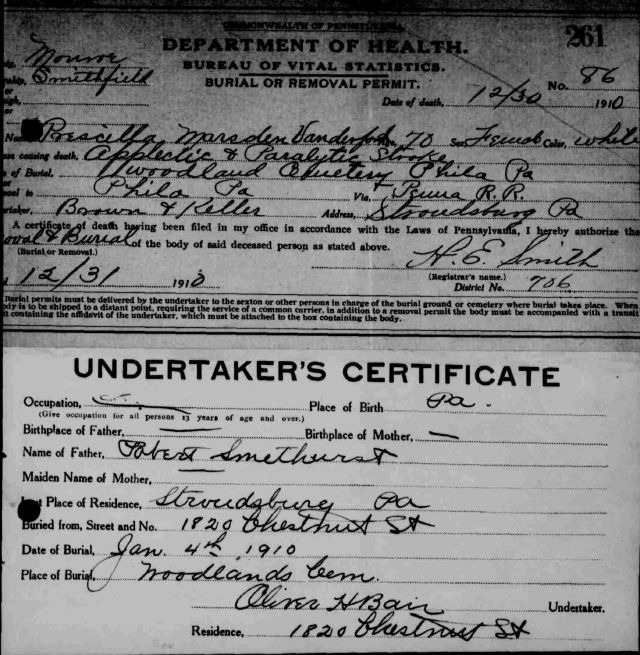 COMMONWEALTH OF PENNSYLVANIA.
261
DEPARTMENT OF HEALTH.
BUREAU OF VITAL STATISTICS.
BURIAL OR REMOVAL PERMIT.
Monroe
Smithfield
No. 86
Date of death, 12/30 1910
Priscilla Marsden 70 Sex Female Color, White
causing death, Applectic & Paralytic Stroke
of Burial, Woodland Cemetery Phila Pa
to Phila Pa Via, Penna R. R.
Brown & Keller Address, Stroudsburg Pa
A certificate of death having been filed in my office in accordance with the Laws of Pennsylvania, I hereby authorize the
oval & Burial of the body of said deceased person as stated above.
(Burial or Removal.)
H. E. Smith
(Registrar's name.)
12/31 1910
District No. 706
Burial permits must be delivered by the undertaker to the sexton or other persons in charge of the burial ground or cemetery where burial takes place. When
body is to be shipped to a distant point, requiring the service of a common carrier, in addition to a removal permit the body must be accompanied with a transit
it containing the affidavit of the undertaker, which must be attached to the box containing the body.
UNDERTAKER'S CERTIFICATE
Occupation, Place of Birth Pa.
(Give occupation for all persons 13 years of age and over.)
Birthplace of Father, — Birthplace of Mother, —
Name of Father, Robert Smethurst
Maiden Name of Mother, —
Place of Residence, Stroudsburg Pa
Buried from, Street and No. 1820 Chestnut St
Date of Burial, Jan. 4th, 1910
Place of Burial, Woodlands Cem.
Oliver H Bair Undertaker.
Residence, 1820 Chestnut St